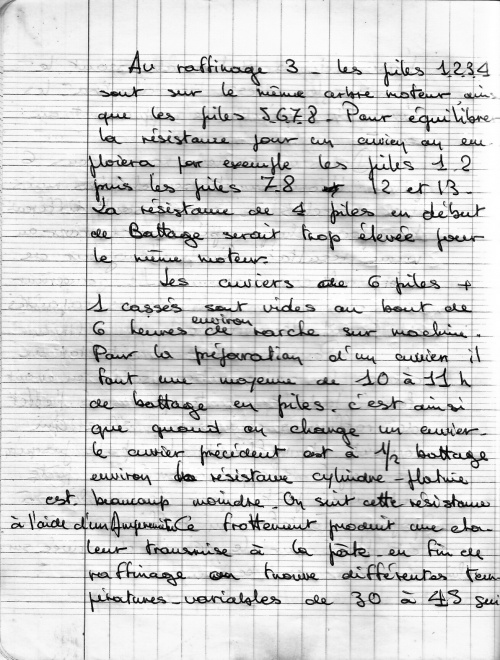 Au raffinage 3 - les piles 1.2.3.4
sont sur le même arbre moteur, ainsi
que les piles 5.6.7.8 - Pour équilibrer
la résistance pour un cuvier on em
ploiera par exemple les piles 1 2
puis les piles 7.8 12 et 13 -
La résistance de 4 piles en début
de Battage serait trop élevée pour
le même moteur.
Les cuviers de 6 piles +
1 cassés sont vides au bout de
6 heures environ de marche sur machine.
Pour la préparation d'un cuvier il
faut une moyenne de 10 à 11 h
de battage en piles. c'est ainsi
que quand on change un cuvier -
le cuvier précédent est à 1/2 battage
environ la résistance cylindre - platine
est beaucoup moindre - On suit cette résistance
à l'aide d'un Ampèremètre Ce frottement produit une cha-
leur transmise à la pâte - en fin de
raffinage on trouve différentes tem
pératures - variables de 30 à 45 sui